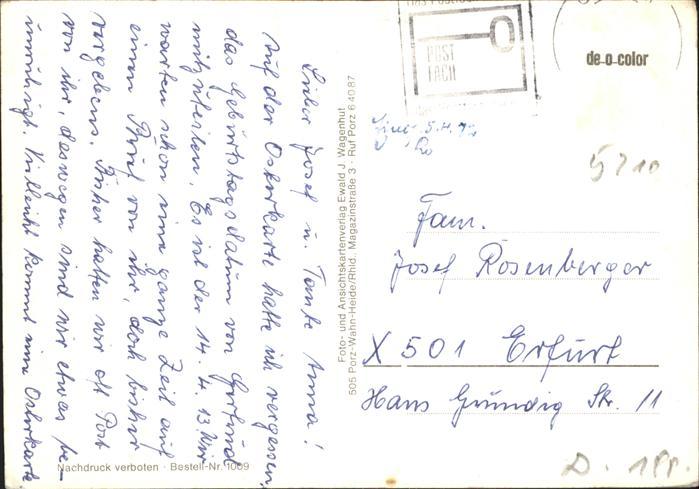 Lieber Josef u. Tante Anna!
Auf der Osterkarte hatte ich vergessen,
das Geburtstagsdatum von
mitzuteilen. Es ist der 14. 4. 13 Wir
warten schon eine ganze Zeit auf
einen Brief von ihr, doch bisher
vergebens. Früher hatten wir oft Post
von ihr, deswegen sind wir etwas be-
unruhigt. Vielleicht kommt eine Osterkarte
Nachdruck verboten · Bestell-Nr. 1009
Foto- und Ansichtskartenverlag Ewald J. Wagenhut
505 Porz-Wahn-Heide/Rhld., Magazinstraße 3 · Ruf Porz 6 40 87
POST
FACH
de-o-color
5.4.72
5710
Fam.
Josef Rosenberger
X 501 Erfurt
Hans Gründig Str. 11